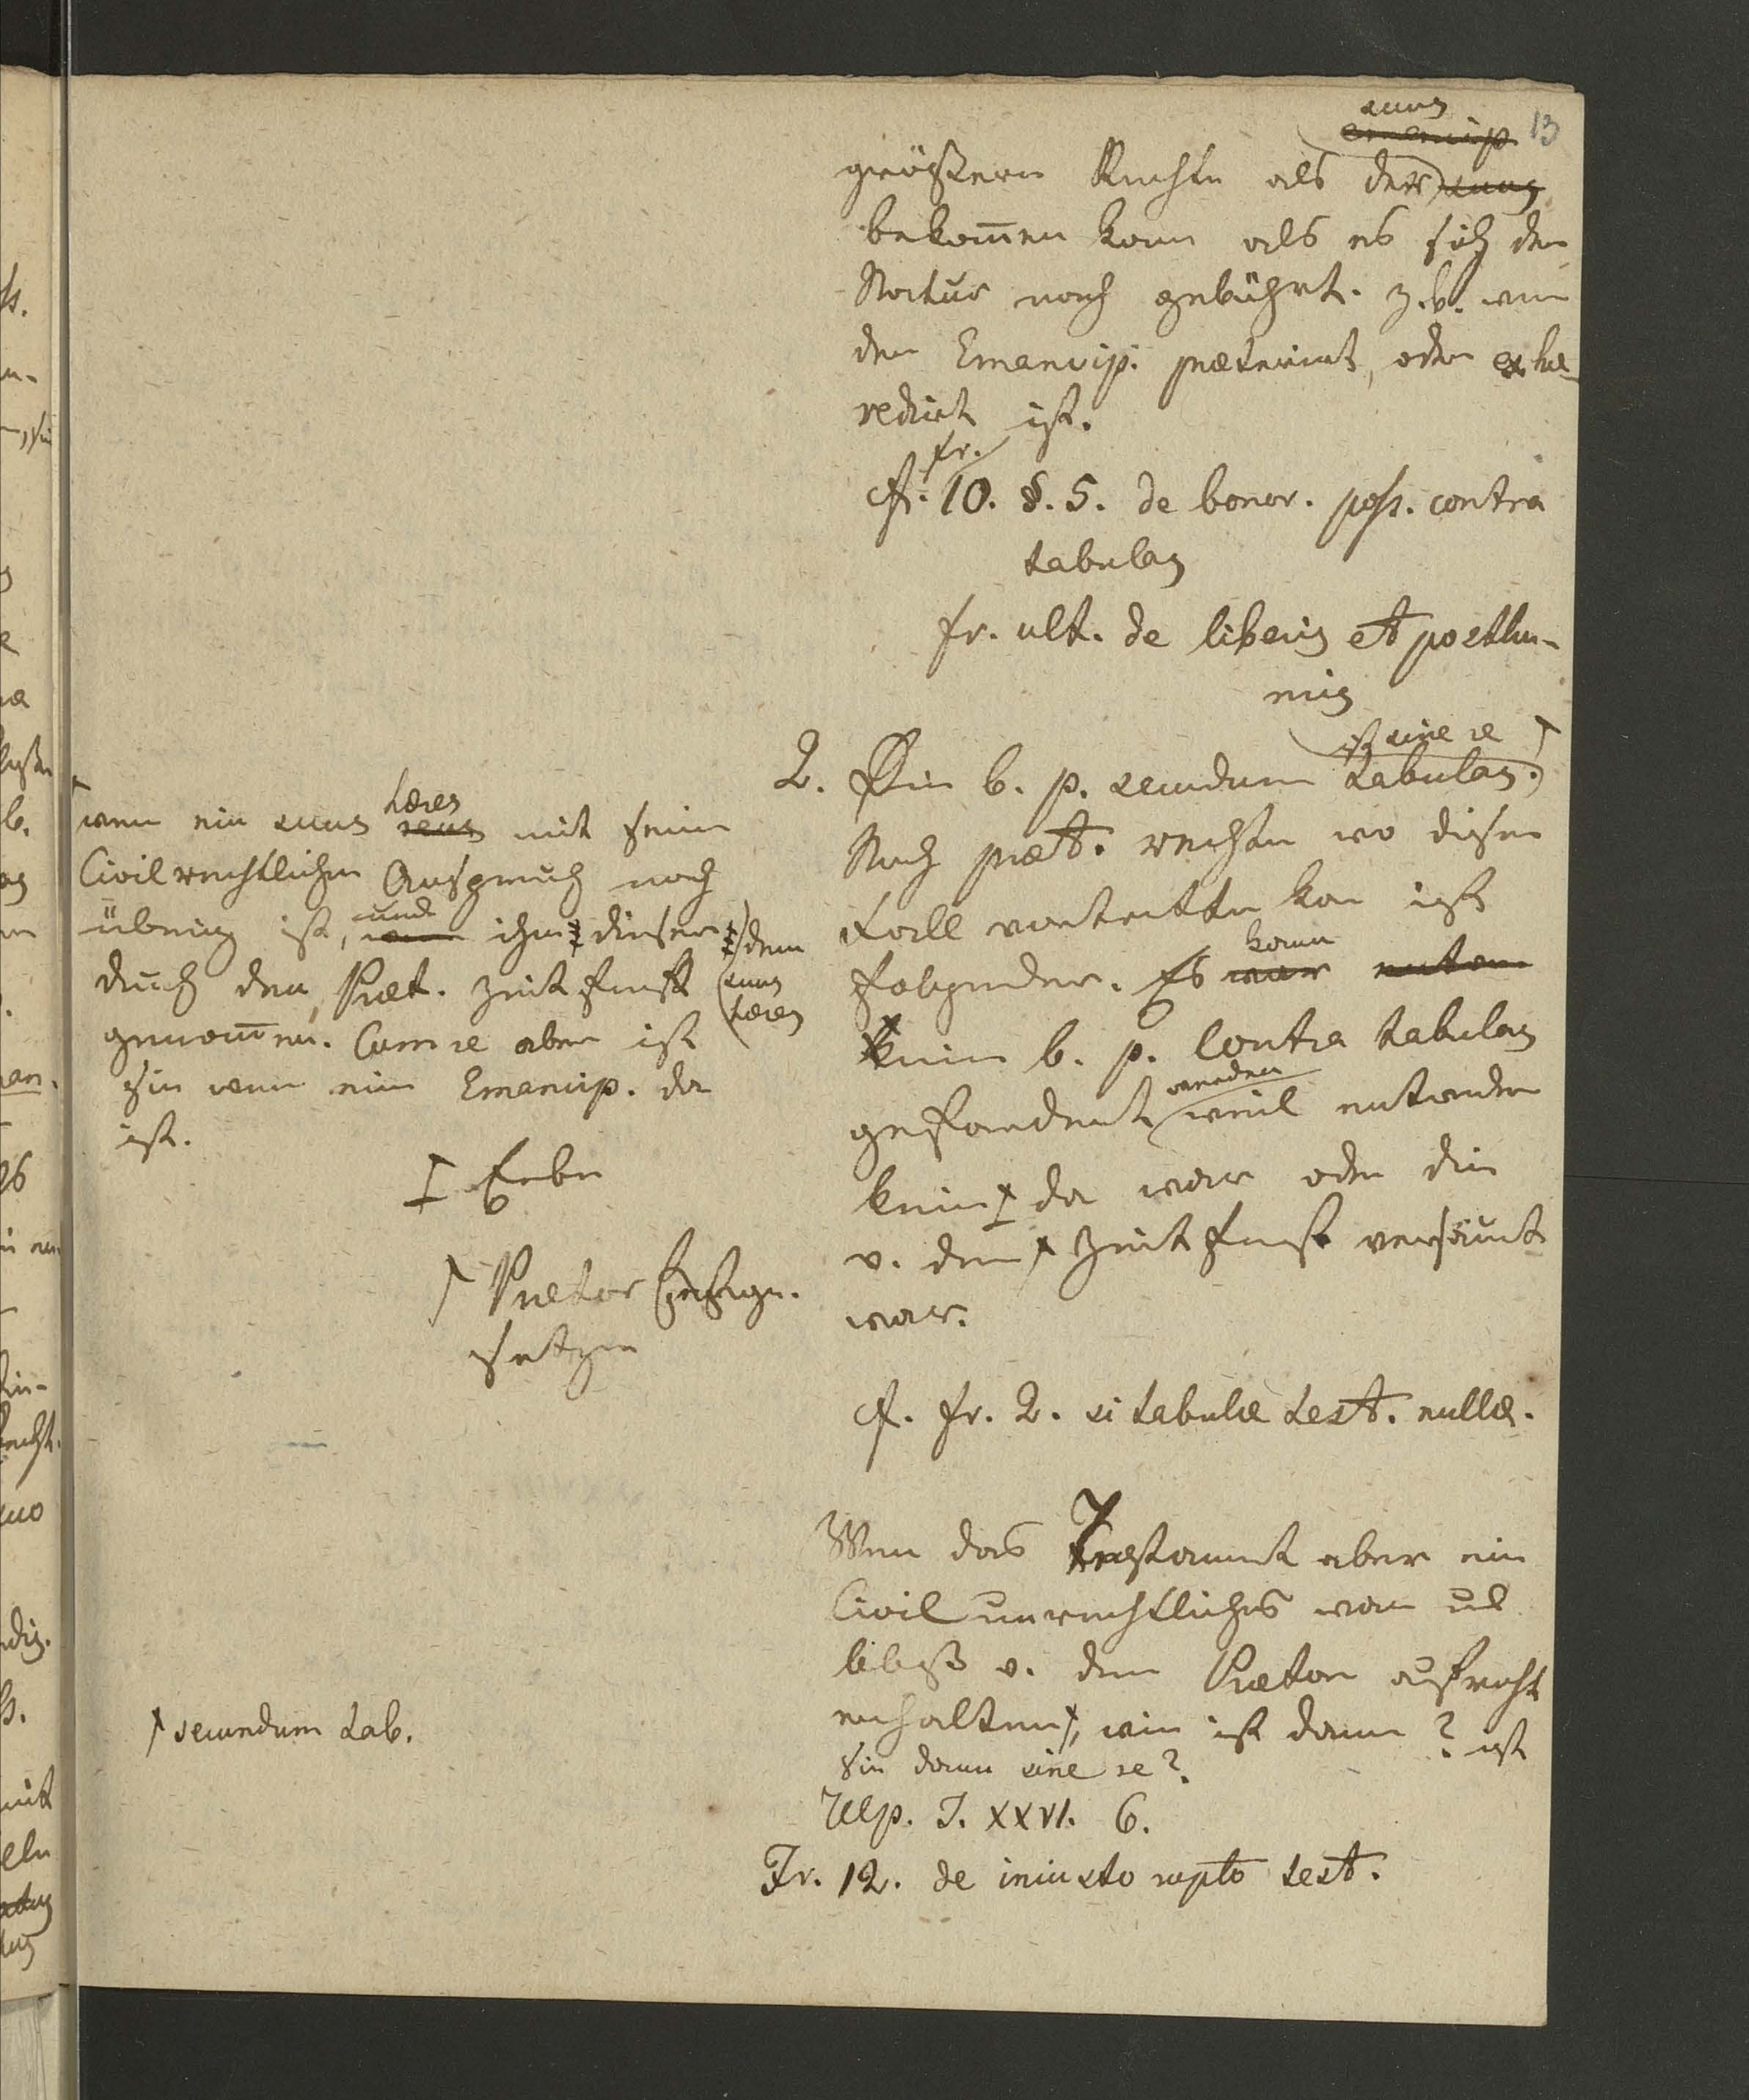 13
suus
emancip
größern Rechte als der suus
bekom̅en kann als es sich der
Natur nach gebührt. z.b. wenn
der Emancip. præterirt, oder exhæ-
redirt ist.
fr.
cf. 10. §. 5. de bonor. poss. contra
tabulas
fr. ult. de liberis et posthu-
mis
ist sine re
2. Ein b. p. secundum tabulas.
Nach præt. rechten wo dieser
Fall eintretten kan ist
folgender. Es war kann
keine b. p. Contra tabulas
gefordert werden weil entweder
keine da war oder die
v. dem Zeitfrist versäumt
war.
cf. fr. 2. si tabulæ test. nullæ.
Wenn das Testament aber ein
Civil unrechtliches war und
bloß v. dem Prætor aufrecht
erhalten, wie ist dann? ist
sie dann sine re?
Ulp. T. XXVI. 6.
Fr. 12. de iniusto rupto test.
wenn ein suus heres mit seinen
Civilrechtlichen Anspruch noch
übrig ist, und ihm dieser dem
suus
heres
durch den Præt. Zeitfrist
genom̅en. Cum re aber ist
sie wenn ein Emancip. da
ist.
Erbe
Prætor festge-
setzten
secundum tab.